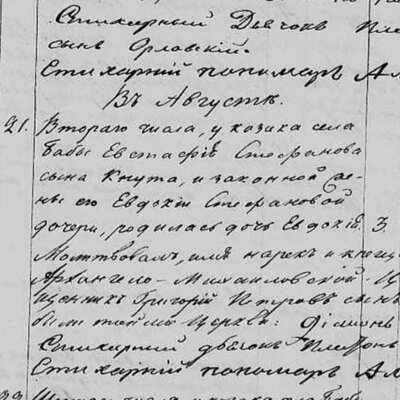 Стихарный Дьячокъ Пла
сынъ Орловскій.
Стихарній пономарь Ал
Въ Августѣ.
21. Втораго числа, у козака села
Бабы Евстафія Стефанова
сына Кнута, и законной же-
ны его Евдокіи Стефановой
дочери, родилась дочь Евдокія. 3.
Молитвовалъ, имя нарекъ и крещ
Архангело-Михайловской Ц
щенникъ Григорій Петровъ сынъ
Церкви: Діаконъ
Стихарній дьячокъ Пла
Стихарній пономарь Ал
22. числа